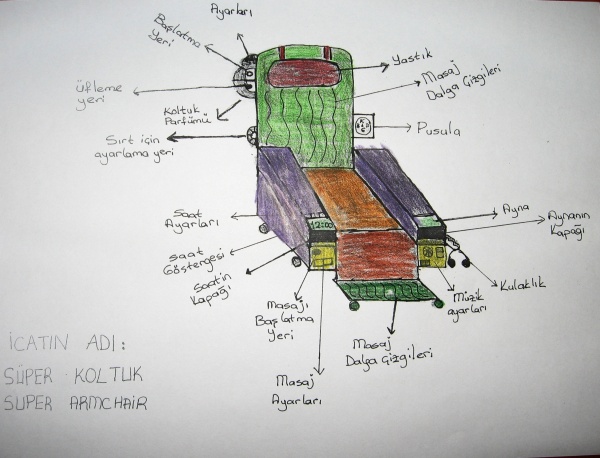 Ayarları
Başlatma
Yeri
Üfleme
yeri
Koltuk
Parfümü
Sırt için
ayarlama yeri
Yastık
Masaj
Dalga Çizgileri
Pusula
Saat
Ayarları
Saat
Göstergesi
Saatin
Kapağı
12:00
Ayna
Aynanın
Kapağı
Kulaklık
Müzik
ayarları
Masajı
Başlatma
Yeri
Masaj
Dalga Çizgileri
Masaj
Ayarları
İCATIN ADI:
SÜPER KOLTUK
SUPER ARMCHAIR